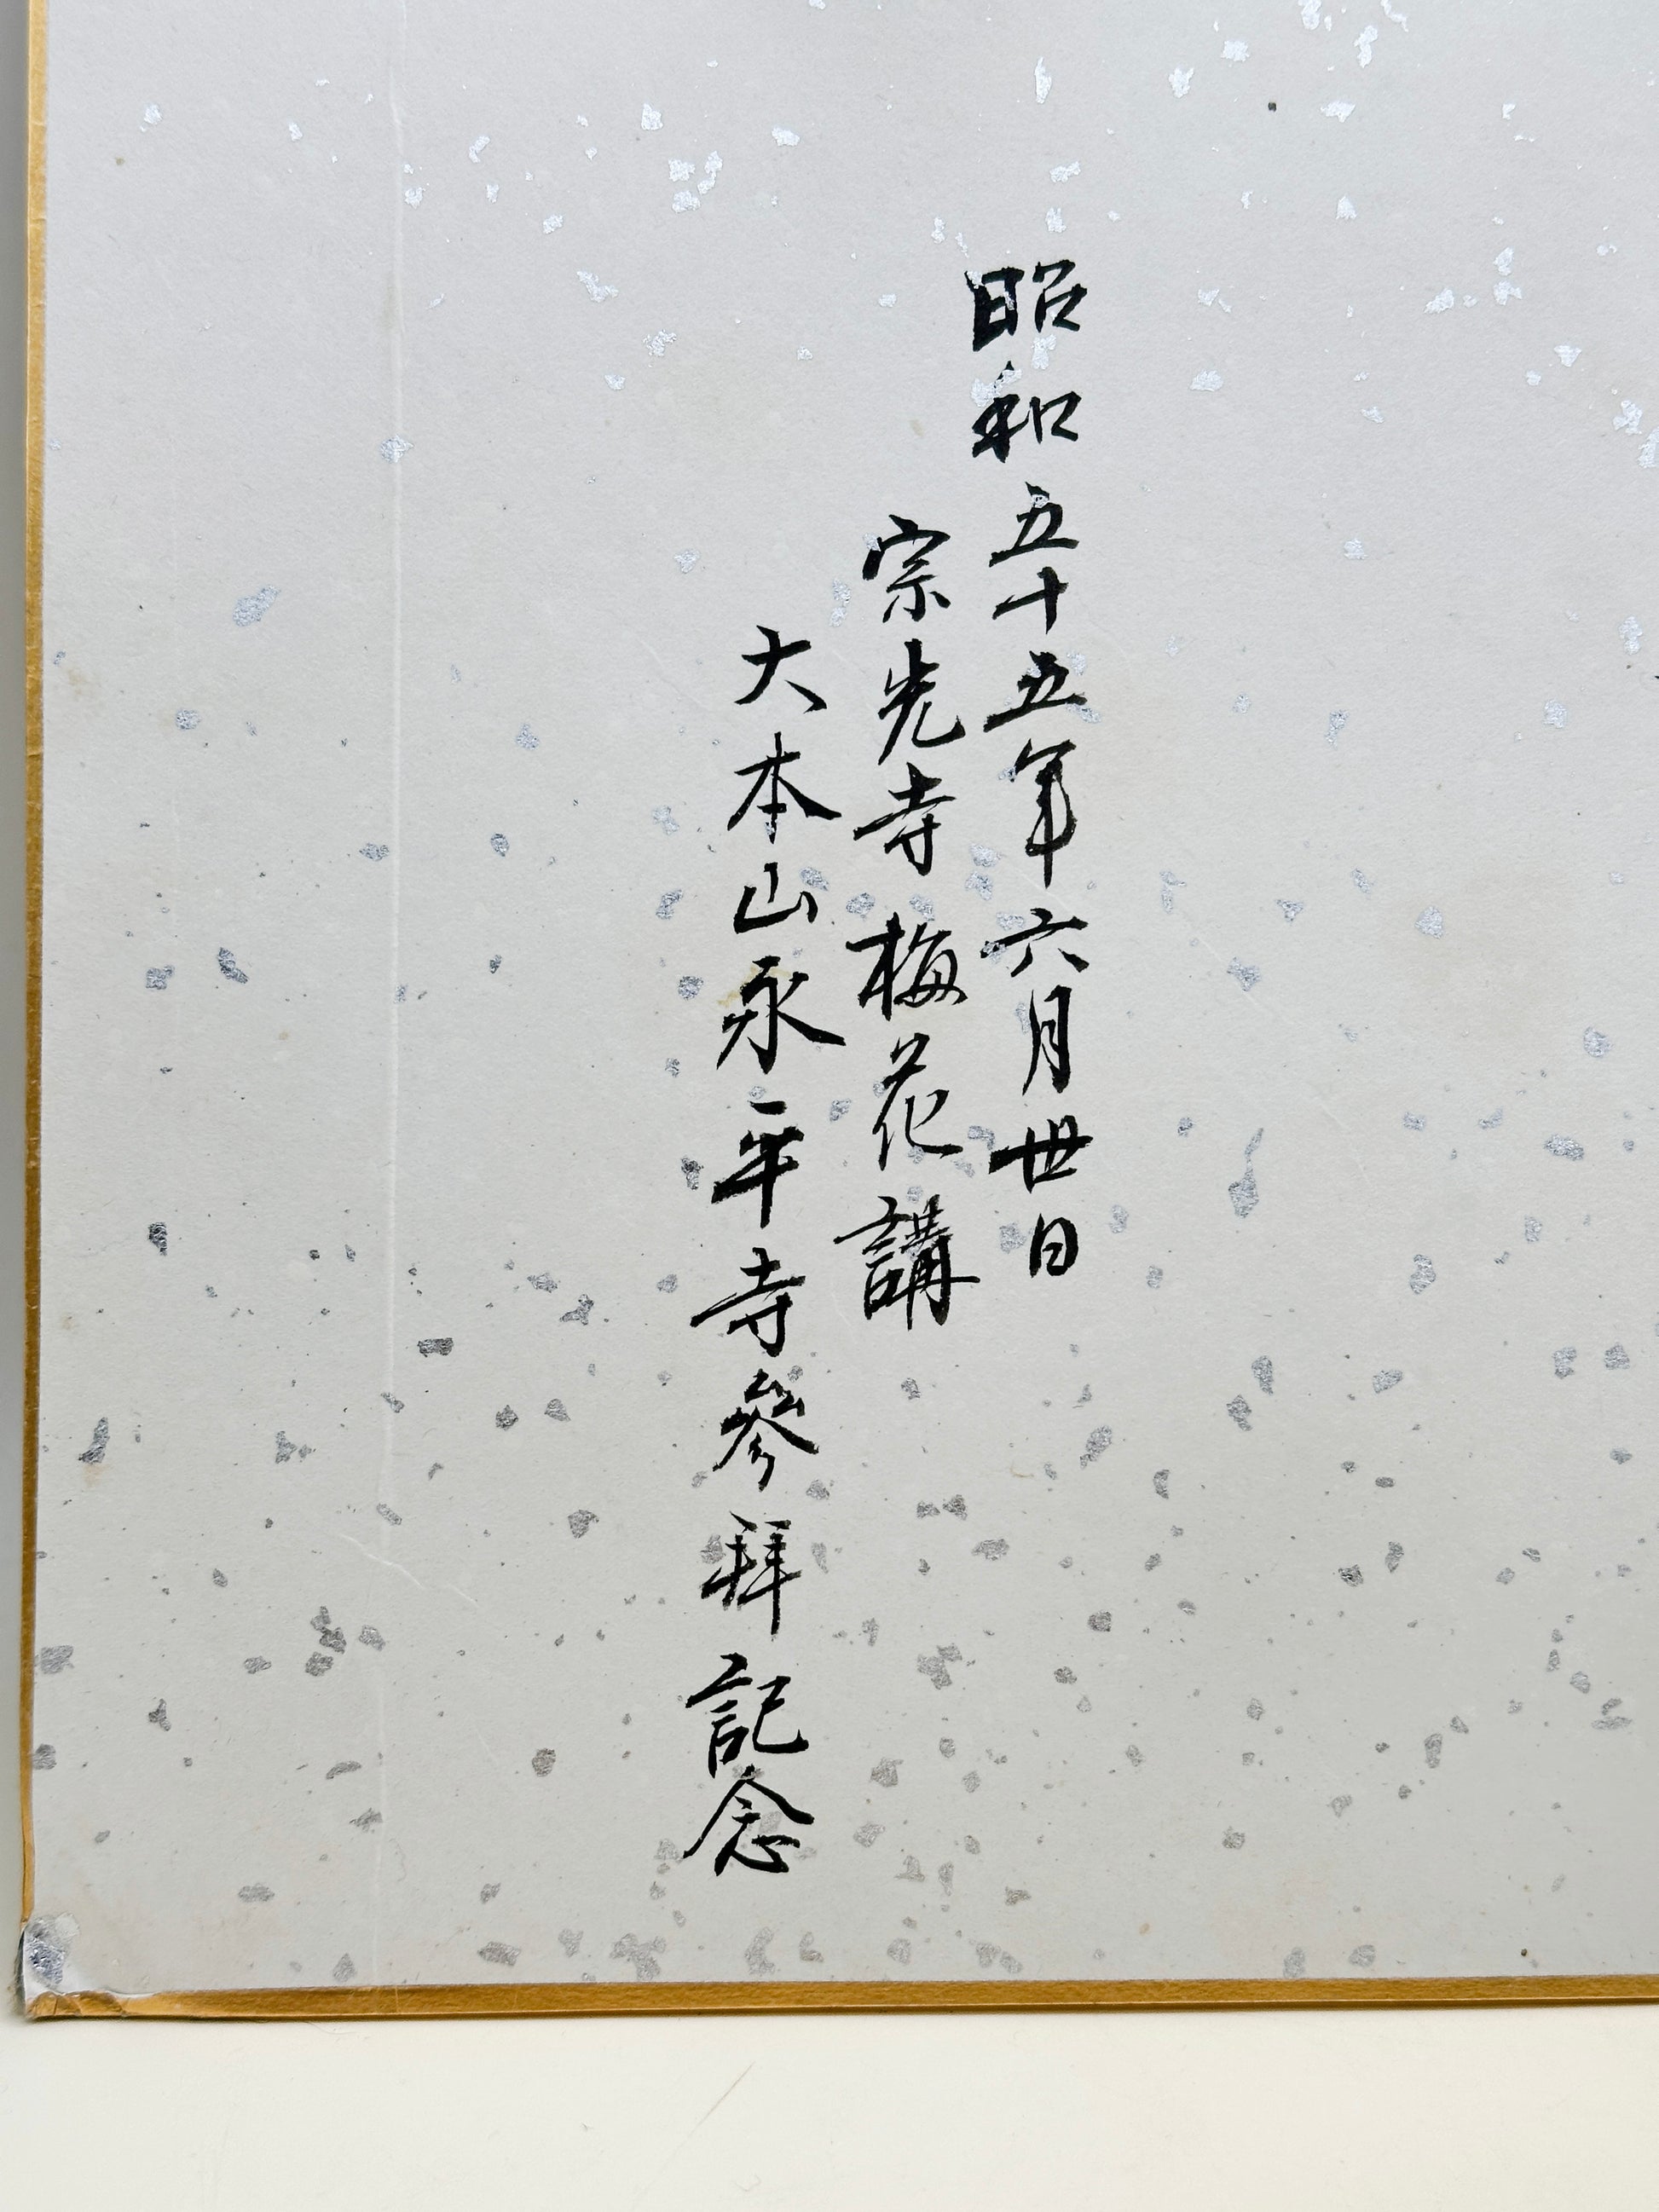 昭和五十五年六月丗日
宗光寺梅花講
大本山永平寺參拜記念